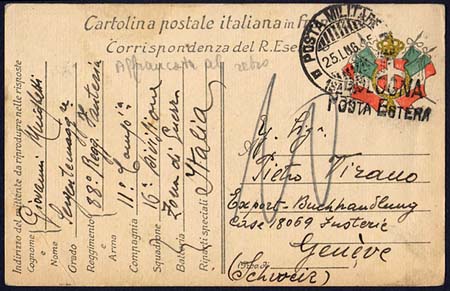 Cartolina postale italiana in f
Corrispondenza del R. Ese
Affrancata al retro
POSTA MILITARE
25.LUG.
BOLOGNA
POSTA ESTERA
Indirizzo del mittente da riprodurre nelle risposte
Cognome Giovanni
e
Nome
Grado Sergente maggre
Reggimento 88° Regg. Fanteria
e
Arma
Compagnia 11a Compia
Squadrone 16a Divisione
Batteria Zona di Guerra
Riparti speciali Italia
Pietro Tirano
Export-Buchhandlung
Case 18059 Fusterie
Genève
(Schweiz)